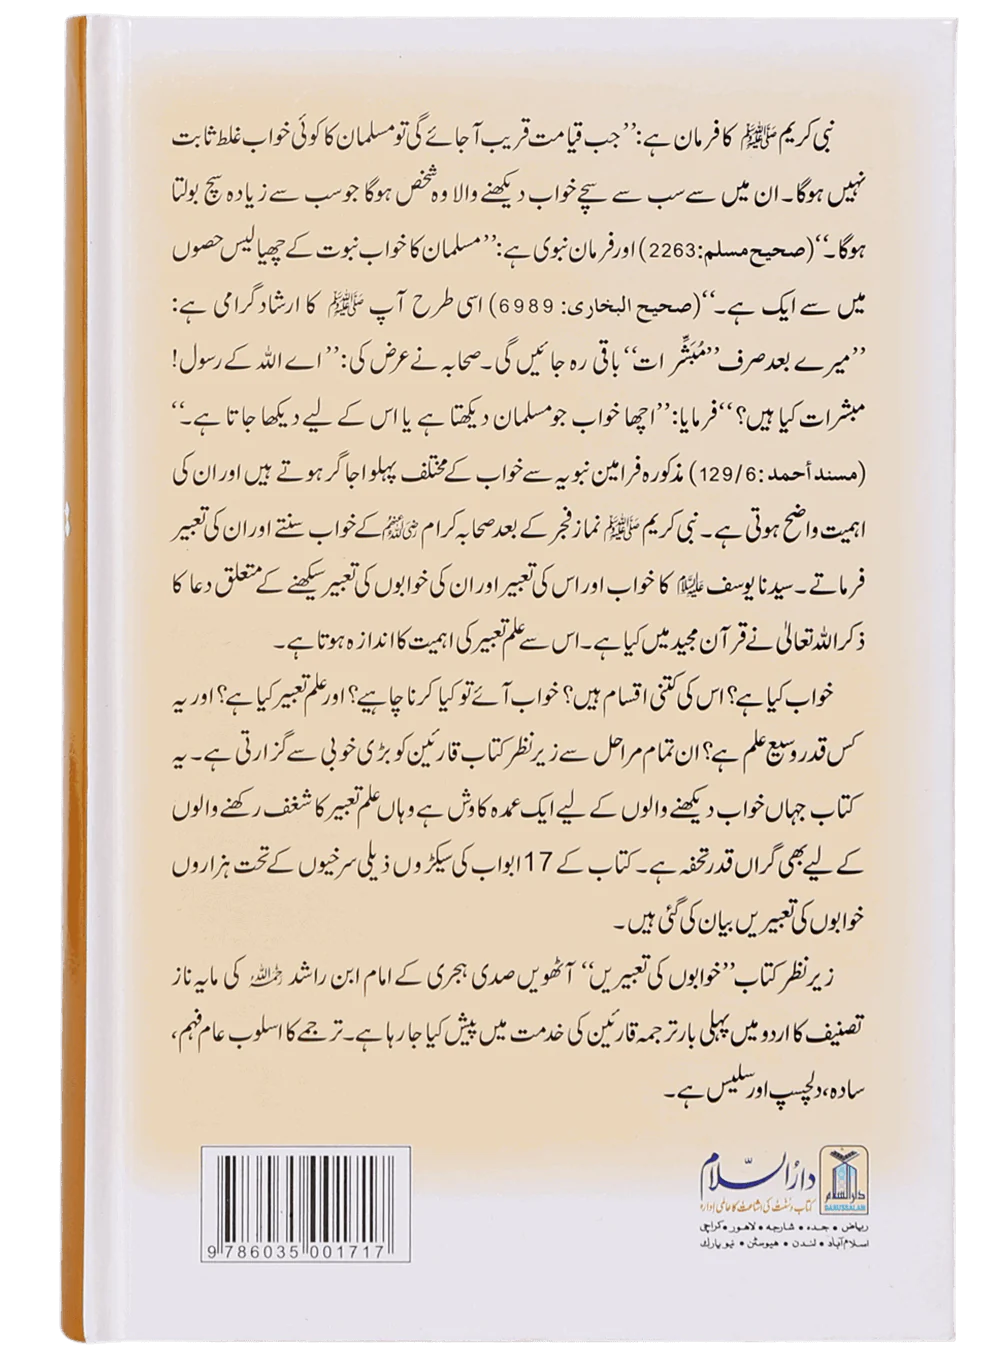 نبی کریم ﷺ کا فرمان ہے: ’’جب قیامت قریب آجائے گی تو مسلمان کا کوئی خواب غلط ثابت
نہیں ہوگا۔ ان میں سے سب سے سچے خواب دیکھنے والا وہ شخص ہوگا جو سب سے زیادہ سچ بولتا
ہوگا۔‘‘ (صحیح مسلم: 2263) اور فرمان نبوی ہے: ’’مسلمان کا خواب نبوت کے چھیالیس حصوں
میں سے ایک ہے۔‘‘ (صحیح البخاری: 6989) اسی طرح آپ ﷺ کا ارشاد گرامی ہے:
’’میرے بعد صرف ’’مُبَشِّرات‘‘ باقی رہ جائیں گی۔ صحابہ نے عرض کی: ’’اے اللہ کے رسول!
مبشرات کیا ہیں؟‘‘ فرمایا: ’’اچھا خواب جو مسلمان دیکھتا ہے یا اس کے لیے دیکھا جاتا ہے۔‘‘
(مسند أحمد: 129/6) مذکورہ فرامین نبویہ سے خواب کے مختلف پہلو اجاگر ہوتے ہیں اور ان کی
اہمیت واضح ہوتی ہے۔ نبی کریم ﷺ نماز فجر کے بعد صحابہ کرام رضی اللہ عنہم کے خواب سنتے اور ان کی تعبیر
فرماتے۔ سیدنا یوسف علیہ السلام کا خواب اور اس کی تعبیر اور ان کی خوابوں کی تعبیر سیکھنے کے متعلق دعا کا
ذکر اللہ تعالیٰ نے قرآن مجید میں کیا ہے۔ اس سے علم تعبیر کی اہمیت کا اندازہ ہوتا ہے۔
خواب کیا ہے؟ اس کی کتنی اقسام ہیں؟ خواب آئے تو کیا کرنا چاہیے؟ اور علم تعبیر کیا ہے؟ اور یہ
کس قدر وسیع علم ہے؟ ان تمام مراحل سے زیر نظر کتاب قارئین کو بڑی خوبی سے گزارتی ہے۔ یہ
کتاب جہاں خواب دیکھنے والوں کے لیے ایک عمدہ کاوش ہے وہاں علم تعبیر کا شغف رکھنے والوں
کے لیے بھی گراں قدر تحفہ ہے۔ کتاب کے 17 ابواب کی سیکڑوں ذیلی سرخیوں کے تحت ہزاروں
خوابوں کی تعبیریں بیان کی گئی ہیں۔
زیر نظر کتاب ’’خوابوں کی تعبیریں‘‘ آٹھویں صدی ہجری کے امام ابن راشد رحمہ اللہ کی مایہ ناز
تصنیف کا اردو میں پہلی بار ترجمہ قارئین کی خدمت میں پیش کیا جا رہا ہے۔ ترجمے کا اسلوب عام فہم،
سادہ، دلچسپ اور سلیس ہے۔
دارالسلام
DARUSSALAM
دارُالسّلام
کتاب و سنت کی اشاعت کا عالمی ادارہ
ریاض • جدہ • شارجہ • لاھور • کراچی
اسلام آباد • لندن • هیوسٹن • نیو یارك
9 786035 001717